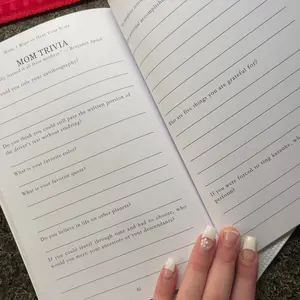 Mom, I Want to Hear Your Story
MOM TRIVIA
would you title your autobiography?
Do you think you could still pass the written portion of
the driver's test without studying?
What is your favorite color?
What is your favorite quote?
Do you believe in life on other planets?
If you could travel through time and had to choose, why
would you meet your ancestors or your descendants?
accomplishments
five things you are grateful for?
If you were forced to sing karaoke, wh
perform?